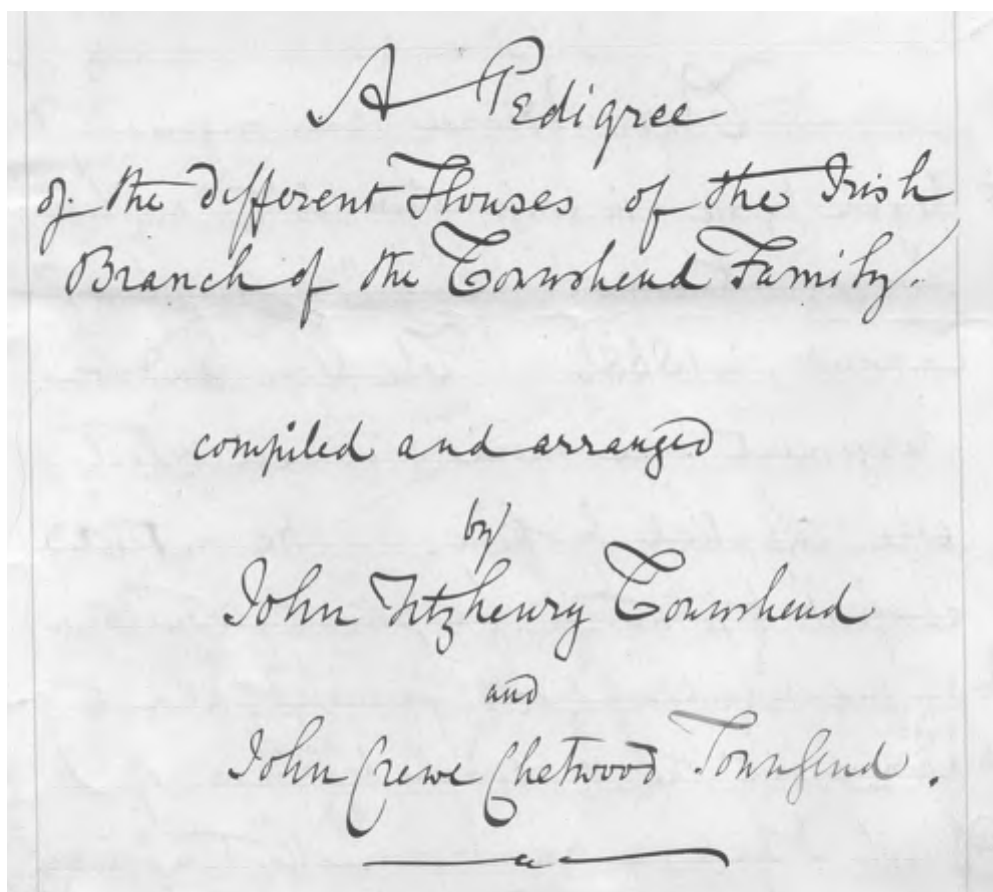 A Pedigree
of the different Houses of the Irish
Branch of the Townshend Family.
compiled and arranged
by
John Fitzhenry Townshend
and
John Crewe Chetwood Townsend.